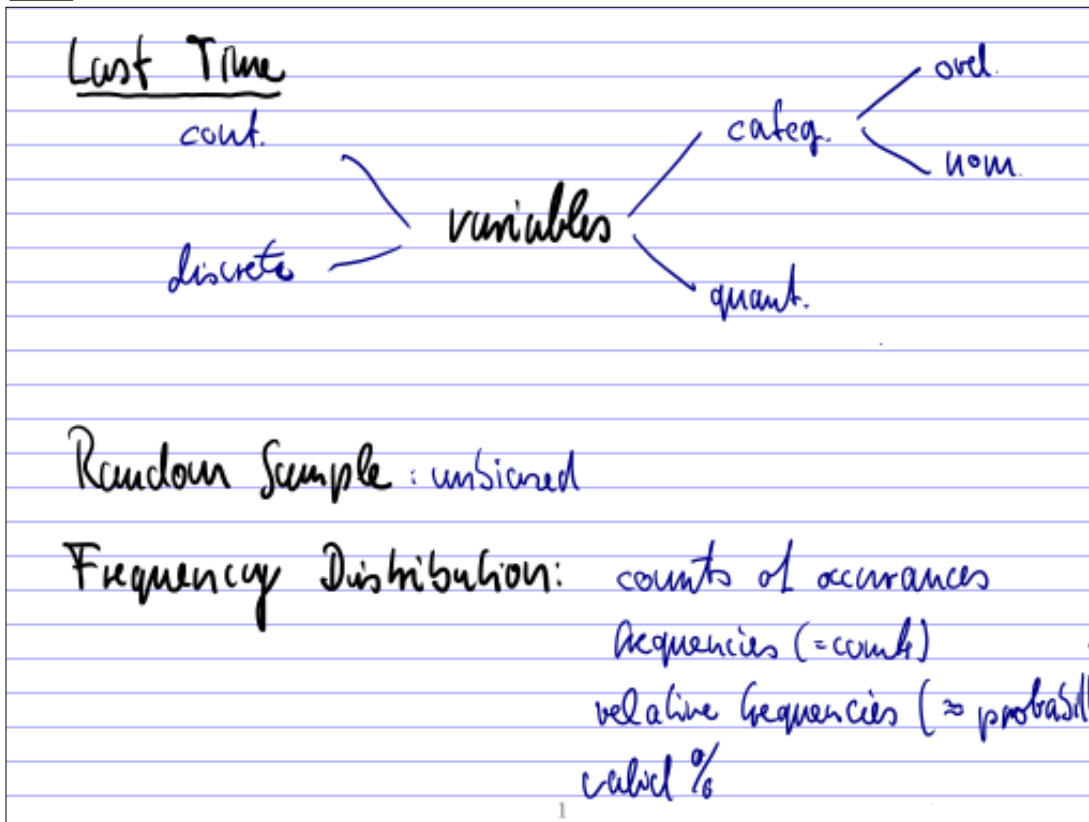 Last Time
ord.
cont.
categ.
nom.
variables
discrete
quant.
Random Sample : unbiased
Frequency Distribution: counts of occurances
frequencies (=counts)
relative frequencies (≈ probabil
valid %
1